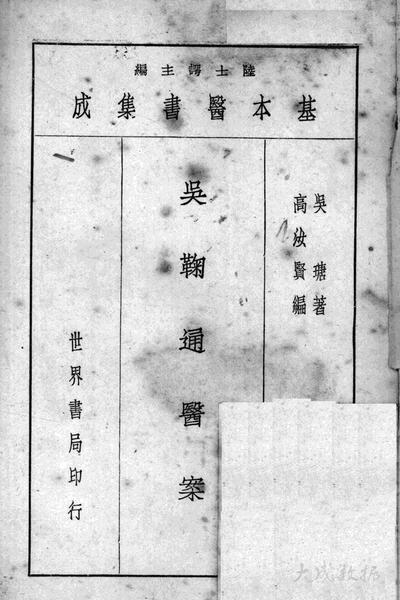 陸士諤主編
基本醫書集成
吳瑭著
高汝賢編
吳鞠通醫案
世界書局印行
大成数据